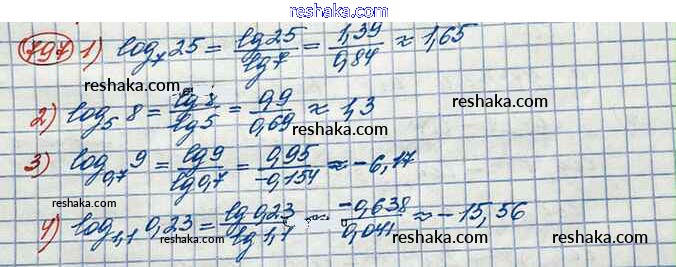 reshaka.com
797 1) log₇25 = lg25/lg7 = 1,39/0,84 ≈ 1,65
reshaka.com reshaka.com
2) log₅8 = lg8/lg5 = 0,9/0,69 ≈ 1,3
reshaka.com reshaka.com reshaka.com
3) log₀,₇9 = lg9/lg0,7 = 0,95/-0,154 ≈ -6,17
reshaka.com reshaka.com
4) log₁,₁0,23 = lg0,23/lg1,1 = -0,638/0,041 ≈ -15,56
reshaka.com reshaka.com reshaka.com
reshaka.com